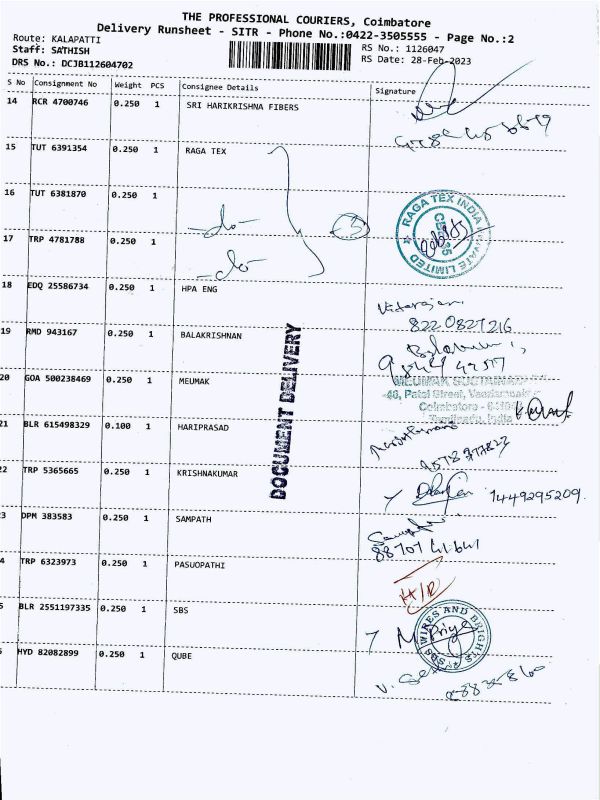 THE PROFESSIONAL COURIERS, Coimbatore
Delivery Runsheet - SITR - Phone No.:0422-3505555 - Page No.:2
Route: KALAPATTI
Staff: SATHISH
DRS No.: DCJB112604702
RS No.: 1126047
RS Date: 28-Feb-2023
S No Consignment No Weight PCS Consignee Details Signature
14 RCR 4700746 0.250 1 SRI HARIKRISHNA FIBERS
15 TUT 6391354 0.250 1 RAGA TEX
16 TUT 6381870 0.250 1 -do-
17 TRP 4781788 0.250 1 -do-
3
RAGA TEX INDIA PRIVATE LIMITED
18 EDQ 25586734 0.250 1 HPA ENG
8220827216
19 RMD 943167 0.250 1 BALAKRISHNAN
20 GOA 500238469 0.250 1 MEUMAK
Coimbatore
21 BLR 615498329 0.100 1 HARIPRASAD
22 TRP 5365665 0.250 1 KRISHNAKUMAR
7449295209
3 DPM 383583 0.250 1 SAMPATH
88707 41641
4 TRP 6323973 0.250 1 PASUOPATHI
H/R
5 BLR 2551197335 0.250 1 SBS
SBS WIRES AND BRIGHTS
Priya
HYD 82082899 0.250 1 QUBE
DOCUMENT DELIVERY